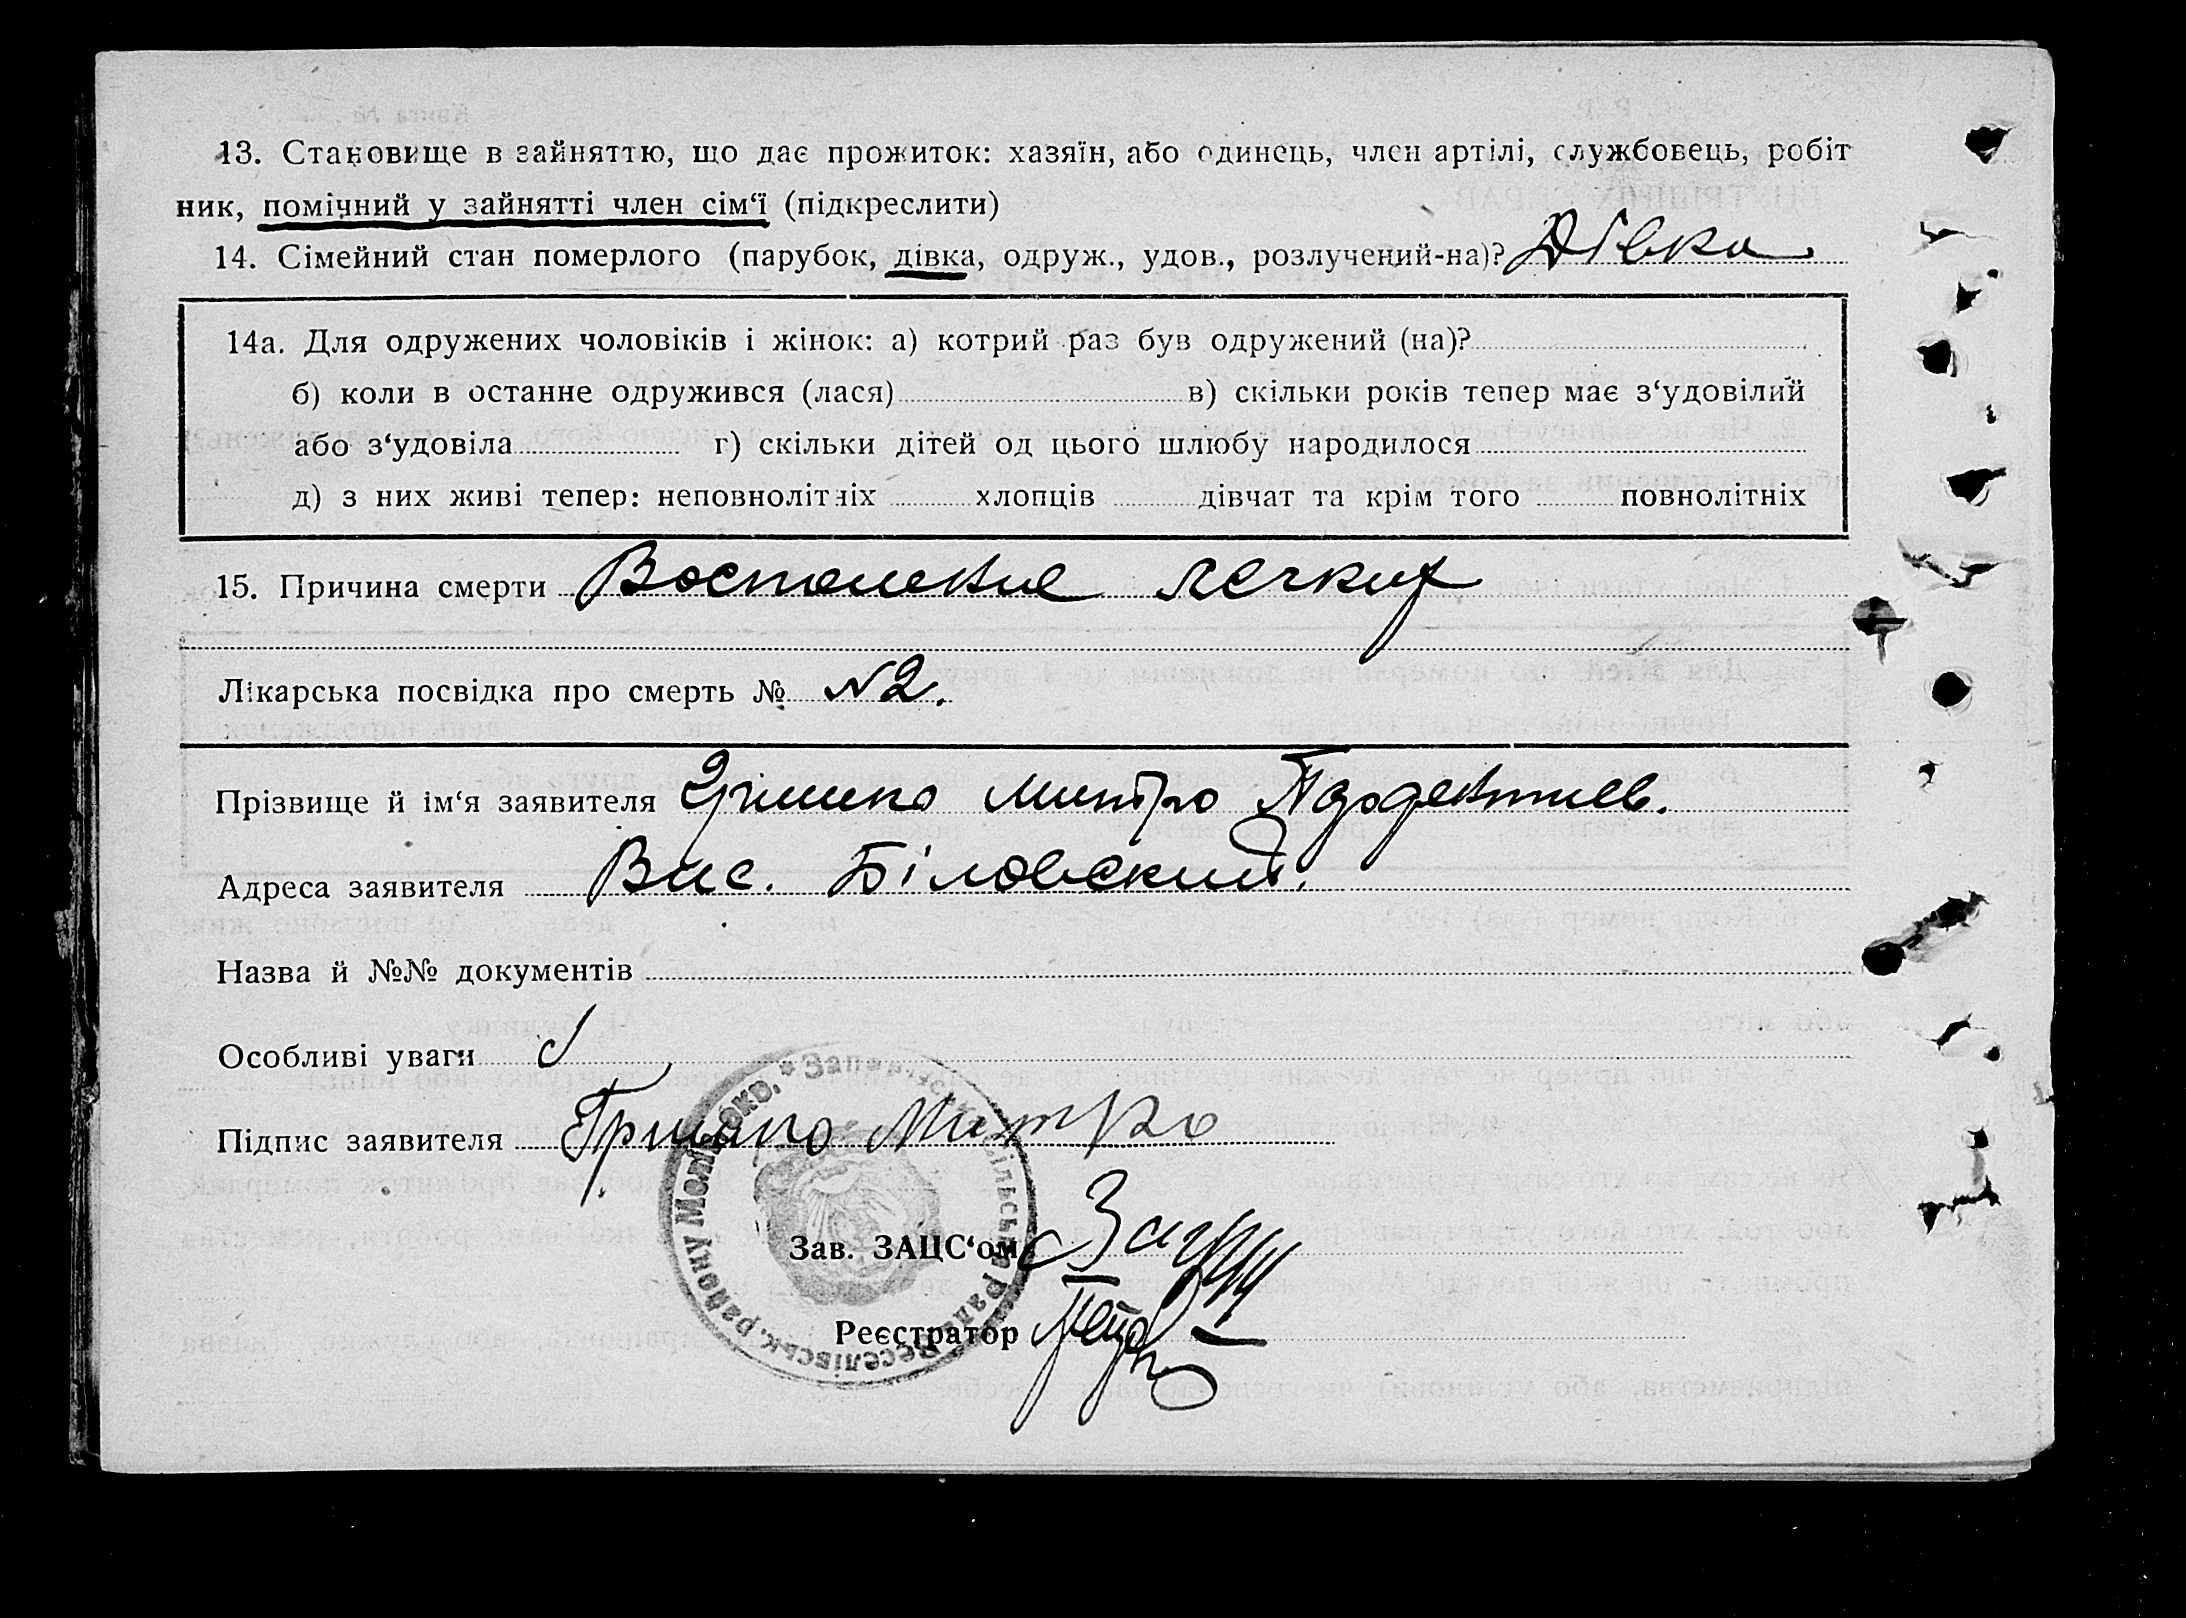 13. Становище в зайняттю, що дає прожиток: хазяїн, або одинець, член артілі, службовець, робіт
ник, помічний у зайнятті член сім‘ї (підкреслити)
14. Сімейний стан померлого (парубок, дівка, одруж., удов., розлучений-на)? Дівка
14а. Для одружених чоловіків і жінок: а) котрий раз був одружений (на)?
б) коли в останне одружився (лася) в) скільки років тепер має з‘удовілий
або з‘удовіла г) скільки дітей од цього шлюбу народилося
д) з них живі тепер: неповнолітніх хлопців дівчат та крім того повнолітніх
15. Причина смерти Воспаление легких
Лікарська посвідка про смерть № N2.
Прізвище й ім‘я заявителя Митро
Адреса заявителя Вис. Біловский.
Назва й №№ документів
Особливі уваги
Підпис заявителя Митро
Зав. ЗАЦС‘ом
Реєстратор
* Запорізська Сільська Рада Веселівськ. району Меліт. окр.